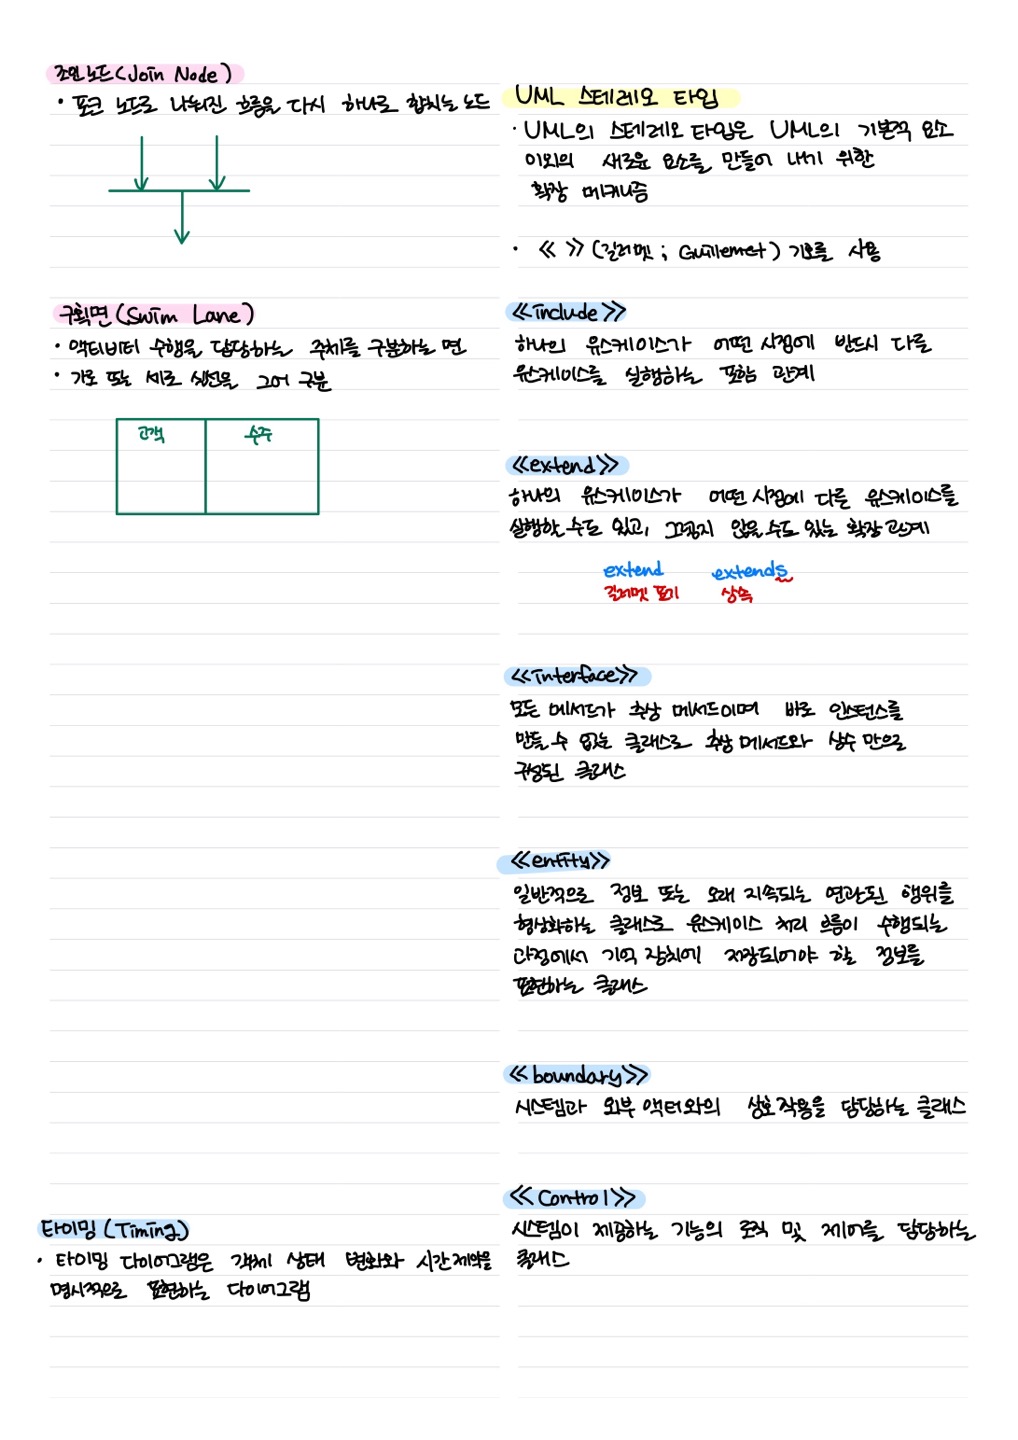 조인 노드(Join Node)
• 포크 노드로 나눠진 흐름을 다시 하나로 합치는 노드
구획면(Swim Lane)
• 액티비티 수행을 담당하는 주체를 구분하는 면
• 가로 또는 세로 실선을 그어 구분
고객 수주
타이밍(Timing)
• 타이밍 다이어그램은 객체 상태 변화와 시간 제약을
명시적으로 표현하는 다이어그램
UML 스테레오 타입
· UML의 스테레오 타입은 UML의 기본적 요소
이외의 새로운 요소를 만들어 내기 위한
확장 메커니즘
· ≪ ≫ (길러멧 ; Guillemet) 기호를 사용
≪include≫
하나의 유스케이스가 어떤 시점에 반드시 다른
유스케이스를 실행하는 포함 관계
≪extend≫
하나의 유스케이스가 어떤 시점에 다른 유스케이스를
실행할 수도 있고, 그렇지 않을 수도 있는 확장 관계
extend extends
길러멧 표기 상속
≪interface≫
모든 메서드가 추상 메서드이며 바로 인스턴스를
만들 수 없는 클래스로 추상 메서드와 상수 만으로
구성된 클래스
≪entity≫
일반적으로 정보 또는 오래 지속되는 연관된 행위를
형상화하는 클래스로 유스케이스 처리 흐름이 수행되는
과정에서 기억 장치에 저장되어야 할 정보를
표현하는 클래스
≪boundary≫
시스템과 외부 액터와의 상호 작용을 담당하는 클래스
≪Control≫
시스템이 제공하는 기능의 로직 및 제어를 담당하는
클래스